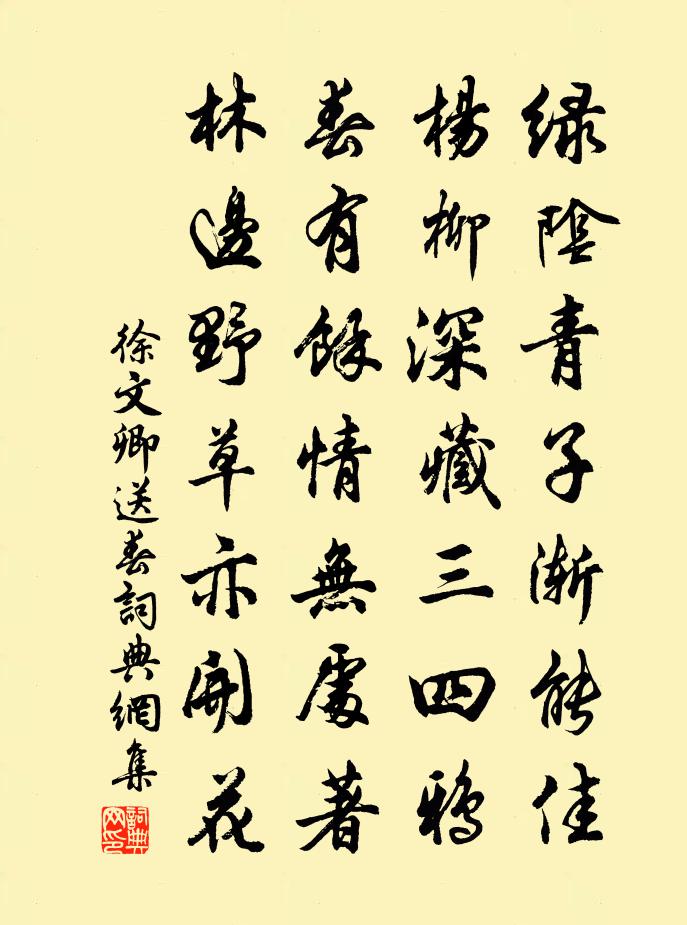 緑陰青子漸能佳
楊柳深藏三四鴉
春有餘情無處著
林邊野草亦開花
徐文卿送春詞典網集
詞典网印